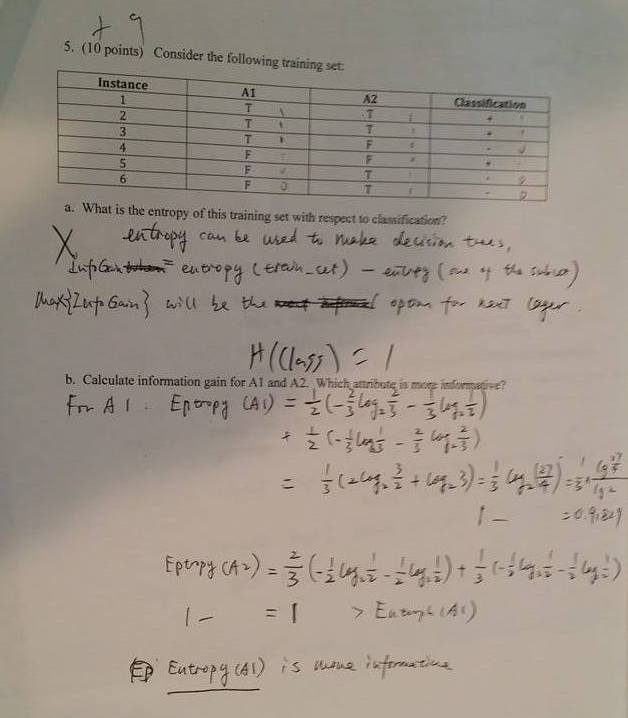 + 9
5. (10 points) Consider the following training set:
Instance A1 A2 Classification
1 T T +
2 T T +
3 T F -
4 F F +
5 F T -
6 F T -
a. What is the entropy of this training set with respect to classification?
X entropy can be used to make decision trees,
InfoGain = entropy (train_set) - entropy (one of the subset)
Max{InfoGain} will be the option for next layer.
H(Class) = 1
b. Calculate information gain for A1 and A2. Which attribute is more informative?
For A1: Entropy (A1) = 1/2 (-2/3 log₂ 2/3 - 1/3 log₂ 1/3)
+ 1/2 (-1/3 log₂ 1/3 - 2/3 log₂ 2/3)
= 1/3 (2log₂ 3/2 + log₂ 3) = 1/3 log₂ (27/4) = 1/3 * lg 27/4 / lg 2
1 - = 0.9182
Entropy (A2) = 2/3 (-1/2 log₂ 1/2 - 1/2 log₂ 1/2) + 1/3 (-1/2 log₂ 1/2 - 1/2 log₂ 1/2)
1 - = 1 > Entropy (A1)
Entropy (A1) is more informative